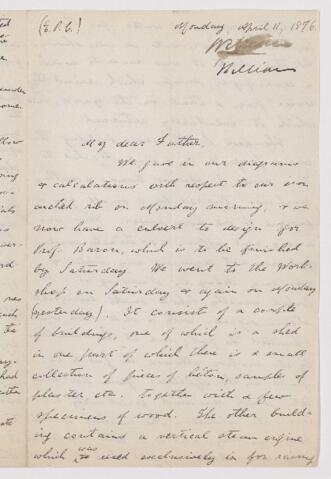 (E.P.C.)
Monday, April 11, 1876.
William
My dear Father,
We gave in our diagrams
& calculations with respect to our iron
arched rib on Monday morning, & we
now have a culvert to design for
Prof. Baron, which is to be finished
by Saturday. We went to the Work-
shop on Saturday & again on Monday
(yesterday). It consists of a couple
of buildings, one of which is a shed
in one part of which there is a small
collection of pieces of béton, samples of
plaster, etc. together with a few
specimens of wood. The other build-
ing contains a vertical steam engine
which was used exclusively in for raising